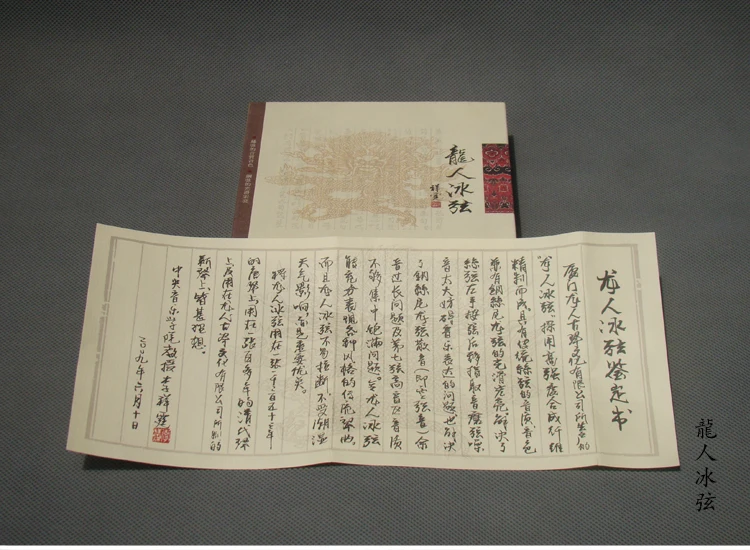 龍人冰弦
龙人冰弦鉴定书
厦门龙人古琴文化有限公司所生产的
"龙人冰弦"採用高强度合成纤维
精制而成具有传统丝弦的音质音色
兼有钢丝尼龙弦的光滑
丝弦左手按弦后移指取音磨弦噪
音太大妨碍音乐表达的问题也解决
了钢丝尼龙弦散音（即空弦音）余
音过长问题及第七弦高音区音质
不够集中饱满问题。令龙人冰弦
能充分表现各种风格的传统琴曲。
而且龙人冰弦不易折断，不受潮湿
天气影响，皆是重要优点。
将龙人冰弦用在一张一千二百五十三年
的唐琴上用在一张百多年的清代琴
上及用在龙人古琴文化有限公司所制的
新琴上，皆甚理想。
中央音乐学院教授 李祥霆
二〇〇九年六月十日
龍人冰弦